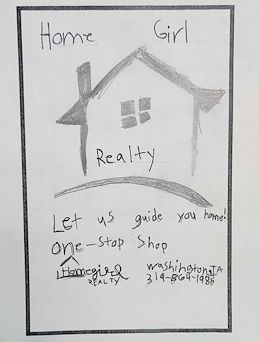 Home Girl
Realty
Let us guide you home!
One-Stop Shop
Homegirl Washington, IA
REALTY 319-864-1985